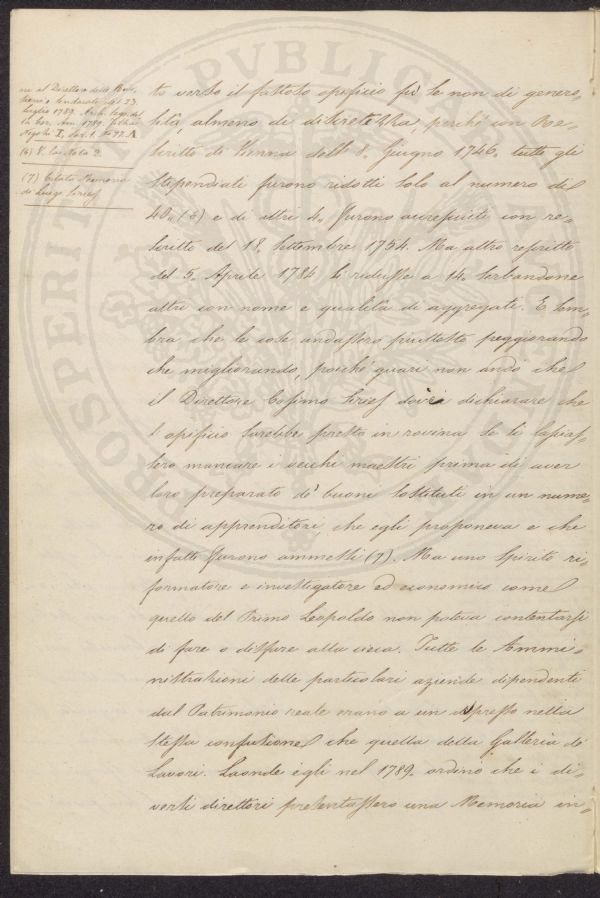 ni al Direttore delle Rive-
luglio 1789. Arch. Segr. del
la Cor. Ann. 1789. Filza
Neg. ti I, Aff. 1. a 72. A
(6) V. la Nota 2.
(7) Citata Memoria
di Luigi Siries
to verso il fattosto opificio fù se non di genero-
sità, almeno di discretezza, perché con Re-
scritto di Vienna dell' 8. Giugno 1746. tutti gli
stipendiati furono ridotti solo al numero di
40. (6) e di altri 4. furono accresciuti con re-
scritto del 18. Settembre 1754. Ma altro rescritto
del 5. Aprile 1784 li ridusse a 14. serbandone
altri con nome e qualità di aggregati. E sem-
bra che le cose andassero piuttosto peggiorando
che migliorando, poiché guari non andò che
il Direttore Cosimo Siries dovè dichiarare che
l'opificio sarebbe presto in rovina se si lascias-
sero mancare i vecchi maestri prima di aver
loro preparato de' buoni sostituti in un nume-
ro di apprenditori che egli proponeva e che
infatti furono ammessi (7). Ma uno spirito ri-
formatore e investigatore ed economico come
quello del Primo Leopoldo non poteva contentarsi
di fare o disfare alla cieca. Tutte le Ammi-
nistrazioni delle particolari aziende dipendenti
dal Patrimonio reale erano a un dipresso nella
stessa confusione che quella della Galleria de'
Lavori. Laonde egli nel 1789. ordinò che i di-
versi direttori presentassero una Memoria in-
PUBLICA
PROSPERIT